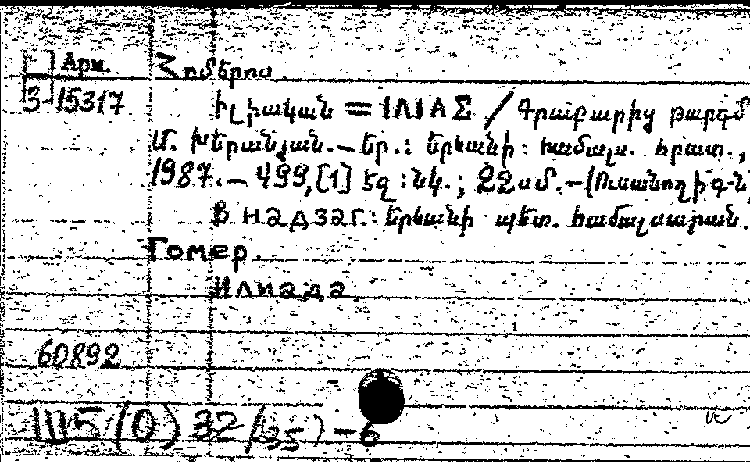 Г Арм. Հոմերոս.
3-15317 Իլիական = ΙΛΙΑΣ / Գրաբարից թարգմ
Մ. Խերանյան. — Եր.: Երևանի համալս. հրատ.,
1987. — 499, [1] էջ: նկ.; 22 սմ. — (Ուսանողի գ-ն)
В надзаг.: Երևանի պետ. համալսարան.
Гомер.
Илиада.
60892
Ш5(0)32(35) – 6